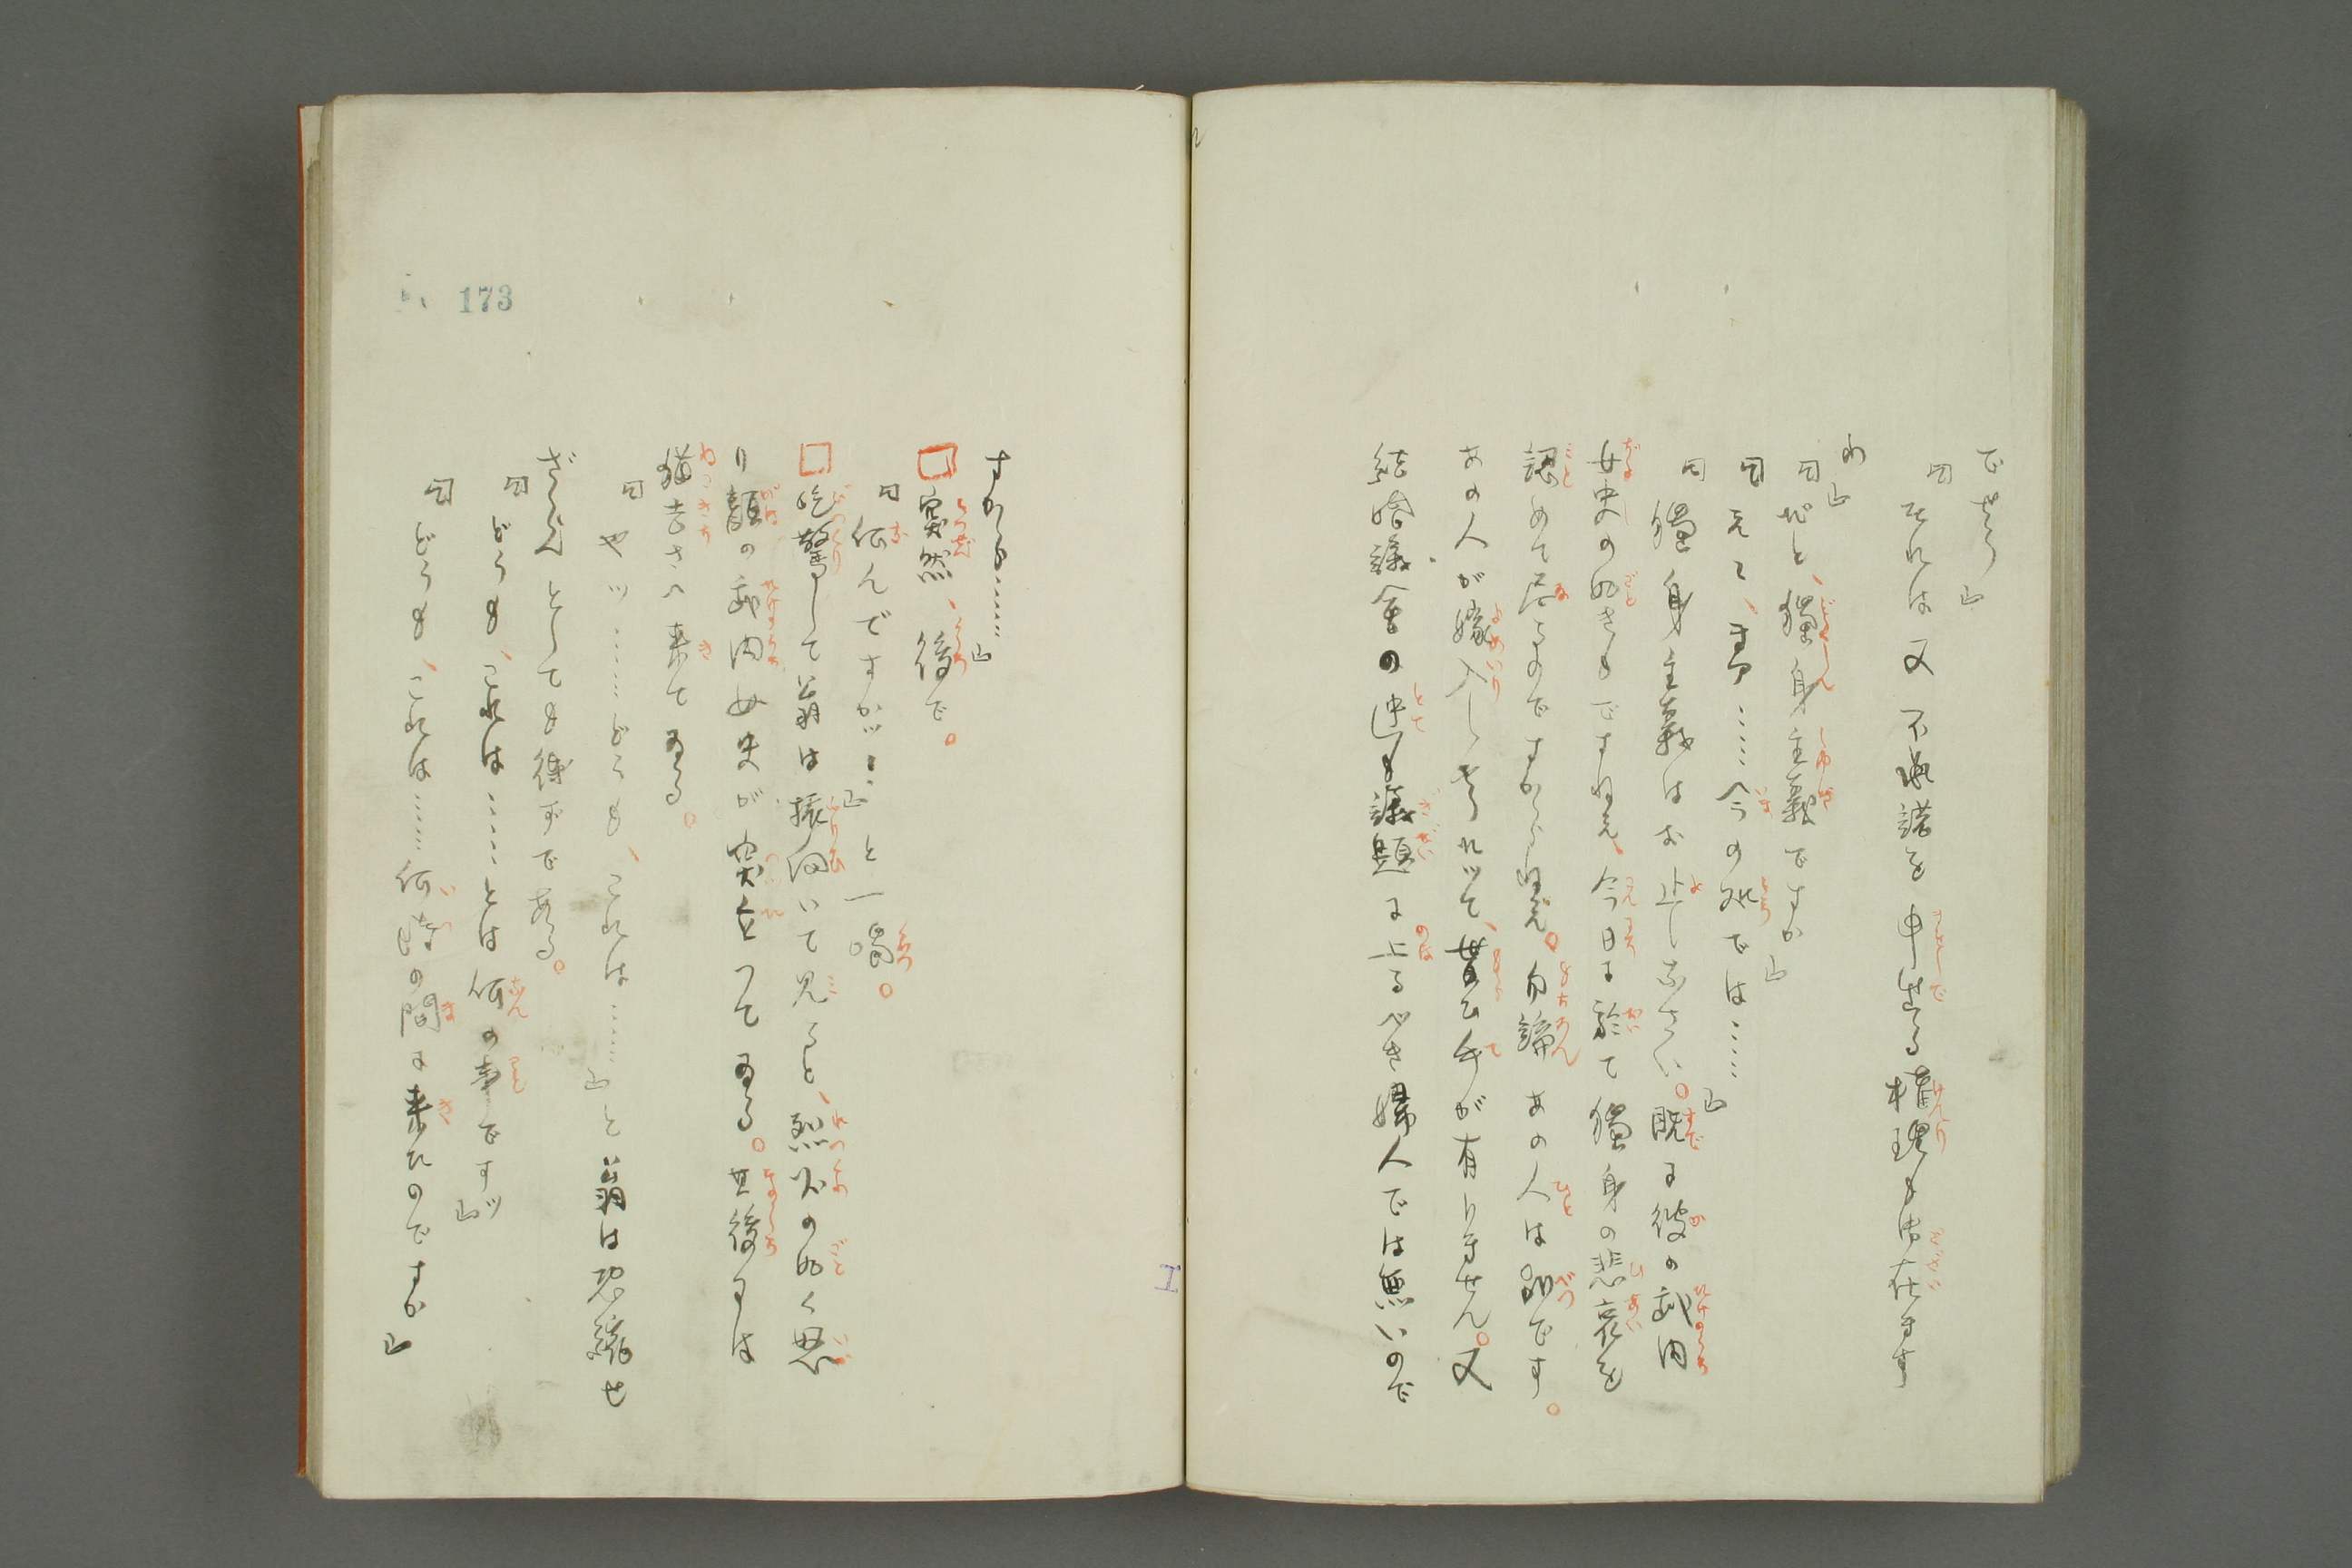 でせう」
「それは又不承諾を申出る権理も御在ます
わ」
「ぢと、獨身主義ですか」
「えゝ、まア……今の処では……」
「獨身主義はお止しなさい。既に彼の武内
女史の如きもですねえ、今日に於て獨身の悲哀を
認めて居るのですからねえ。勿論あの人は別です。
あの人が嫁入しやうれツて、貰ひ手が有りません。又
結婚議会の迚も議題に上るべき婦人では無いので
すから……」
突然、後で。
「何んですかッ…」と一喝。
吃驚して翁は振向いて見ると、烈火の如く思
り顔の武内女史が突立つてゐる。其後には
猫吉さへ来てゐる。
「やッ……どうも、これは……」と翁は恐縮せ
ざらんとしても得ずである。
「どうも、これは……とは何の事ですッ」
「どうも、これは……何時の間に来たのですか」
173